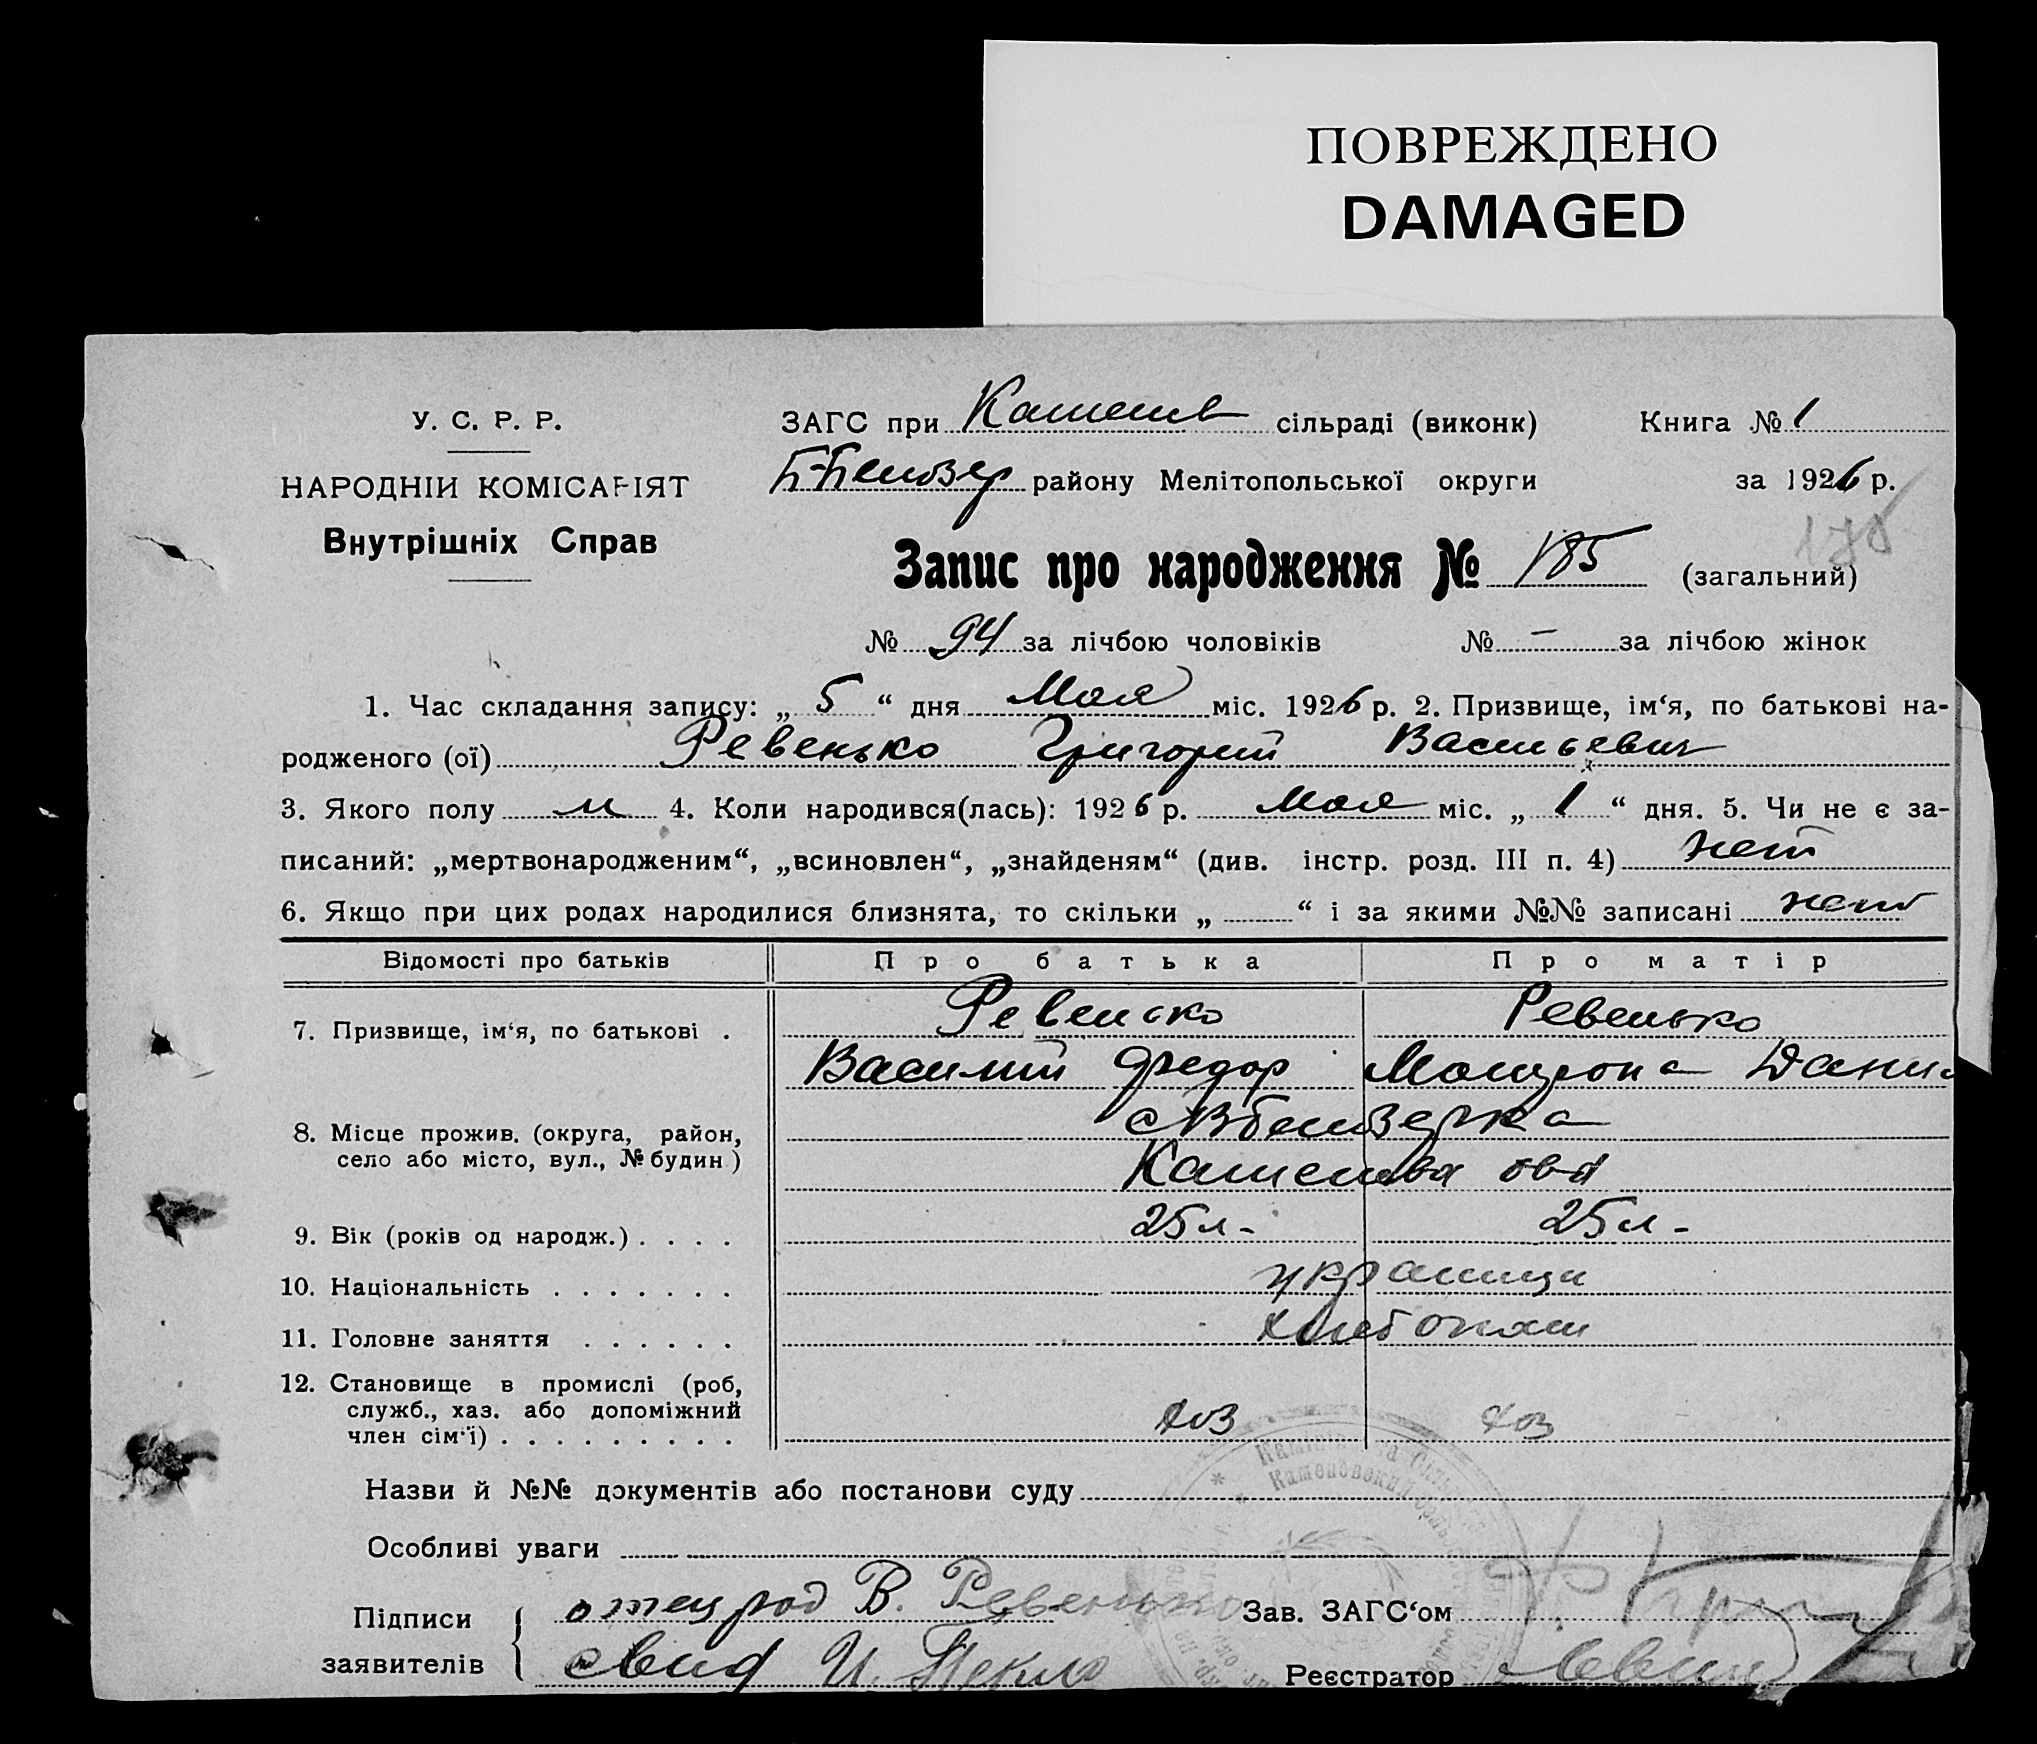 ПОВРЕЖДЕНО
DAMAGED
У. С. Р. Р.
НАРОДНІЙ КОМІСАРІЯТ
Внутрішніх Справ
ЗАГС при Каменов сільраді (виконк) Книга № 1
Б-Белозер району Мелітопольської округи за 1926 р.
Запис про народження № 185 (загальний)
№ 94 за лічбою чоловіків № — за лічбою жінок
1. Час складання запису: „ 5 “ дня Мая міс. 1926 р. 2. Призвище, ім‘я, по батькові на-
родженого (ої) Ревенько Григорий Васильевич
3. Якого полу м 4. Коли народився(лась): 1926 р. Мая міс. „ 1 “ дня. 5. Чи не є за-
писаний: „мертвонародженим“, „всиновлен“, „знайденям“ (див. інстр. розд. III п. 4) нет
6. Якщо при цих родах народилися близнята, то скільки „ “ і за якими №№ записані нет
Відомості про батьків Про батька Про матір
7. Призвище, ім‘я, по батькові . Ревенько Ревенько
Василий Федор Мотрона Данил
8. Місце прожив. (округа, район,
село або місто, вул., № будин)
9. Вік (років од народж.) . . . . 25 л - 25 л -
10. Національність . . . . . . . украинци
11. Головне заняття . . . . . . хлебопаш
12. Становище в промислі (роб,
служб., хаз. або допоміжний
член сім‘ї) . . . . . . . . . хоз хоз
Назви й №№ документів або постанови суду
Особливі уваги
Підписи отец род В. Ревенько Зав. ЗАГС‘ом
заявителів свид И. Реєстратор